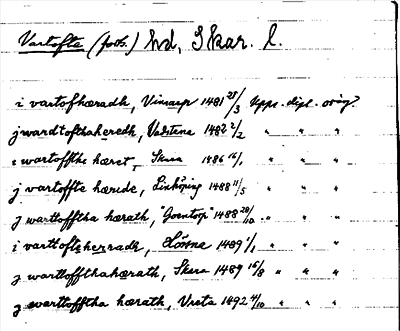 Vartofta (forts.) hd, Skar. l.
i vartofhæradh, Vinsarp 1481 25/3 Upps. dipl. orig?
j wardtofthaheredh, Vadstena 1482 2/2 " " "
i wartoffthe hæret, Skara 1486 16/1 " " "
j vartoffte hæride, Linköping 1488 11/5 " " "
j wartofftha hærath, "Goentorp" 1488 28/10 " " "
i vartofteherradh, 1489 1/1 " " "
j wartoffthahærath, Skara 1489 16/8 " " "
j wartofftha hærath, Vreta 1492 4/10 " " "